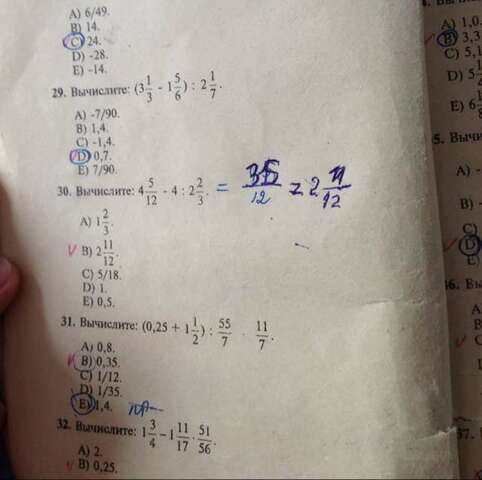 A) 6/49.
B) 14.
C) 24.
D) -28.
E) -14.
29. Вычислите: (3 1/3 - 1 5/6) : 2 1/7.
A) -7/90.
B) 1,4.
C) -1,4.
D) 0,7.
E) 7/90.
30. Вычислите: 4 5/12 - 4 : 2 2/3. = 35/12 = 2 11/12
A) 1 2/3.
B) 2 11/12.
C) 5/18.
D) 1.
E) 0,5.
31. Вычислите: (0,25 + 1 1/2) : 55/7 · 11/7.
A) 0,8.
B) 0,35.
C) 1/12.
D) 1/35.
E) 1,4.
32. Вычислите: 1 3/4 - 1 11/17 · 51/56.
A) 2.
B) 0,25.
Вы
A) 1,0
B) 3,3
C) 5,1
D) 5
E) 6
5. Вычи
A) -
B) -
C)
D)
E)
36. Вы
A
B
C
D
E
37.